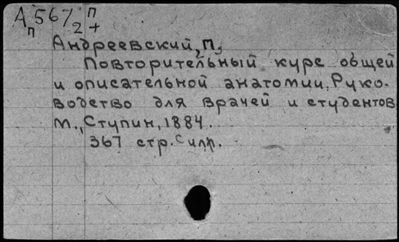 А 567/2 П
п +
Андреевский, П.,
Повторительный курс общей
и описательной анатомии. Руко-
водство для врачей и студентов
М., Ступин, 1884.
367 стр. с илл.